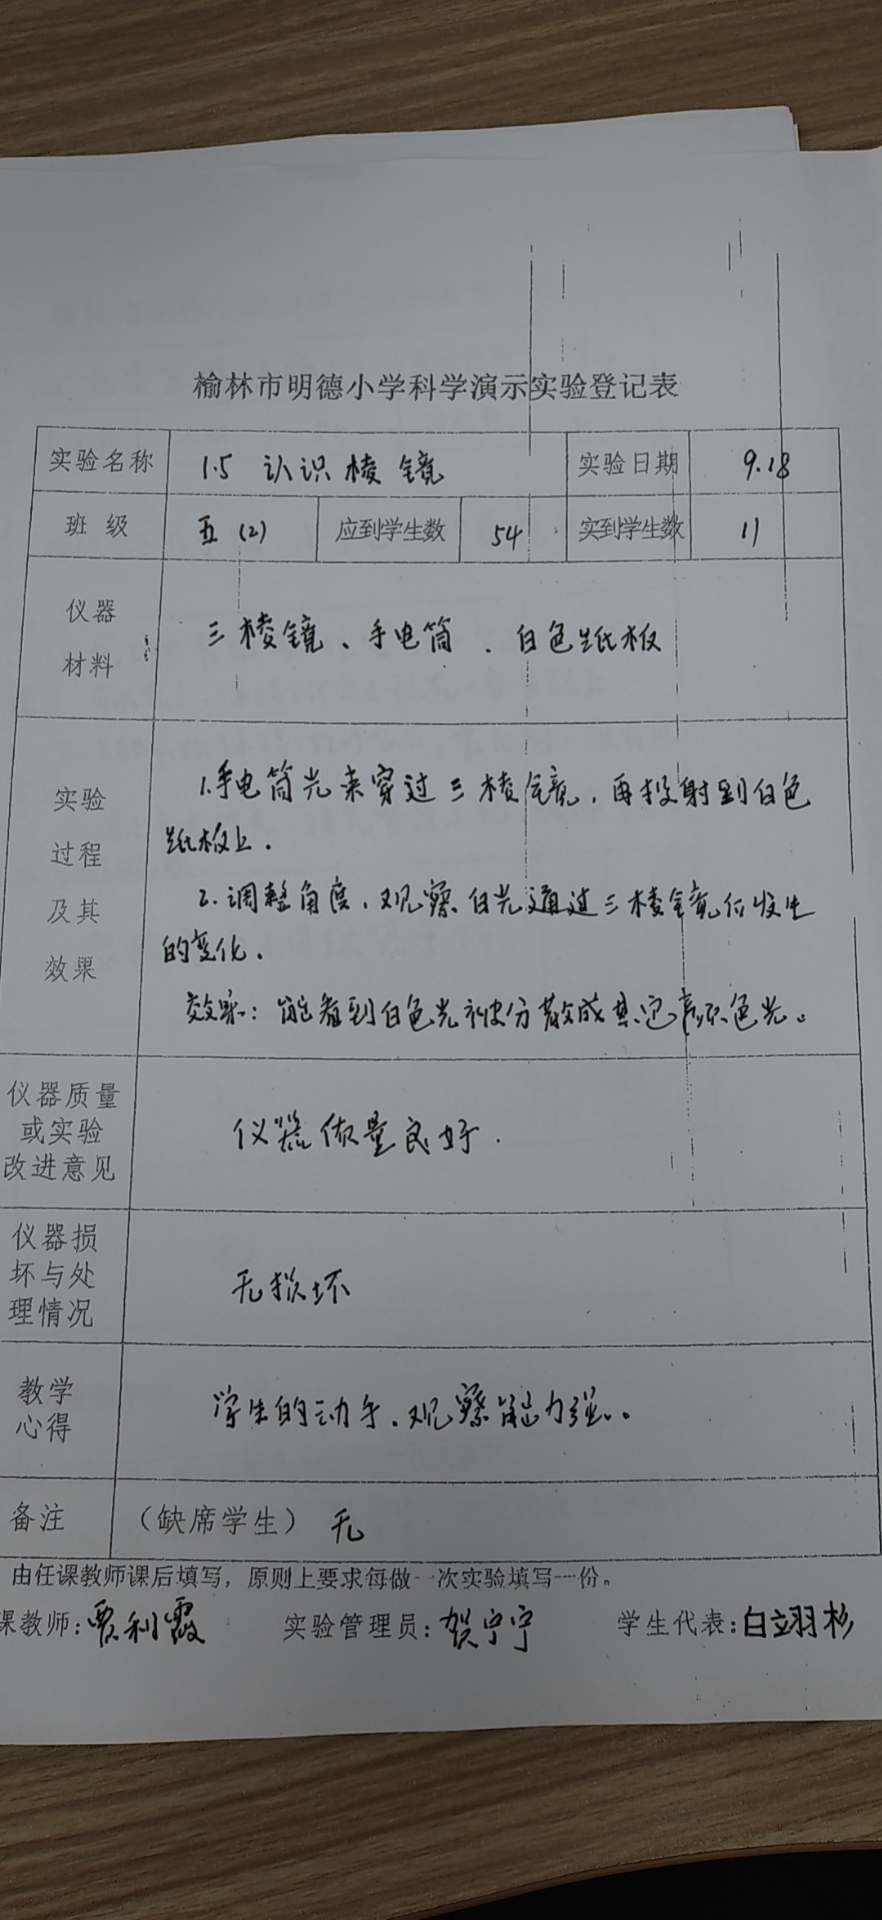 榆林市明德小学科学演示实验登记表
实验名称 1.5 认识棱镜 实验日期 9.18
班级 五(2) 应到学生数 54 实到学生数 11
仪器
材料
三棱镜、手电筒、白色纸板
实验
过程
及其
效果
1.手电筒光束穿过三棱镜,再投射到白色
纸板上.
2.调整角度,观察白光通过三棱镜后发生
的变化.
效果:能看到白色光被分散成其它颜色光。
仪器质量
或实验
改进意见
仪器质量良好.
仪器损
坏与处
理情况
无损坏
教学
心得
学生的动手、观察能力强。
备注 (缺席学生) 无
由任课教师课后填写,原则上要求每做一次实验填写一份。
课教师:贾利霞 实验管理员:贺宁宁 学生代表:白翊杉